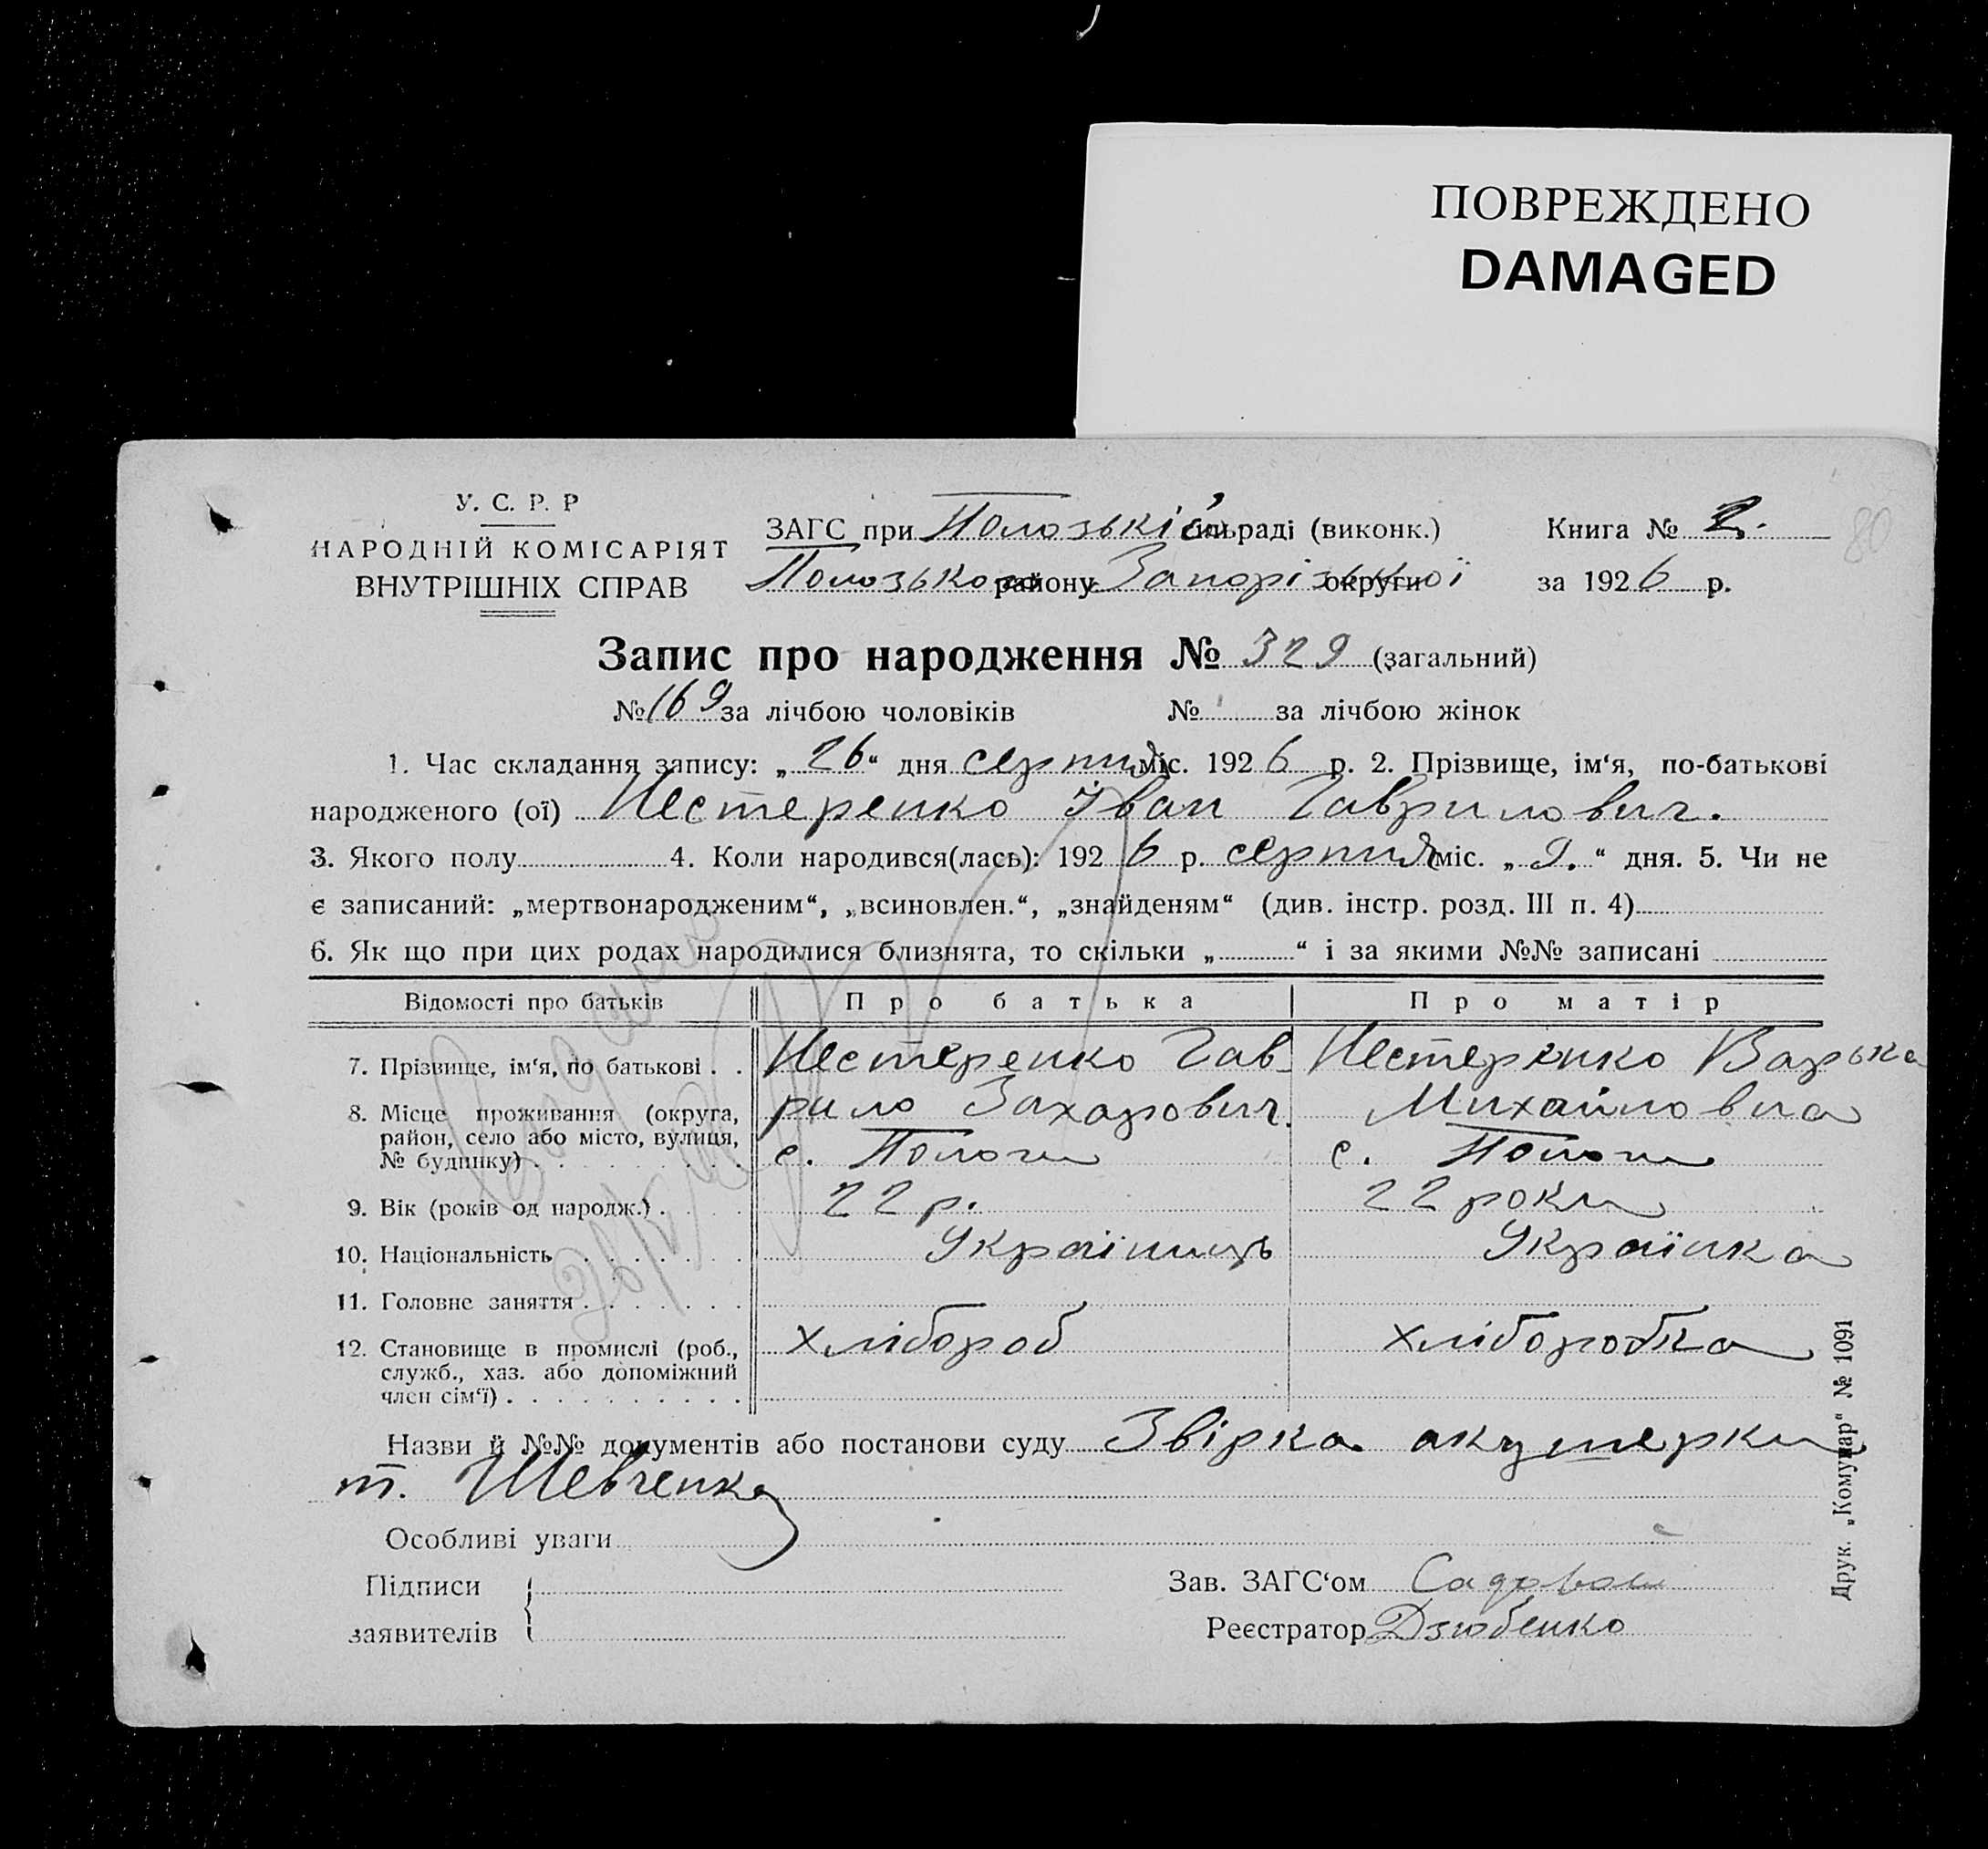 ПОВРЕЖДЕНО
DAMAGED
80
У. С. Р. Р
НАРОДНІЙ КОМІСАРІЯТ
ВНУТРІШНІХ СПРАВ
ЗАГС при Полозькій сільраді (виконк.)
Полозького району Запорізької округи
Книга № 2.
за 1926 р.
Запис про народження № 329 (загальний)
№ 169 за лічбою чоловіків № за лічбою жінок
1. Час складання запису: „26“ дня серпня міс. 1926 р. 2. Прізвище, ім‘я, по-батькові
народженого (ої) Нестеренко Іван Гаврилович.
3. Якого полу 4. Коли народився(лась): 1926 р. серпня міс. „9.“ дня. 5. Чи не
є записаний: „мертвонародженим“, „всиновлен.“, „знайденям“ (див. інстр. розд. III п. 4)
6. Як що при цих родах народилися близнята, то скільки „ “ і за якими №№ записані
Відомості про батьків Про батька Про матір
7. Прізвище, ім‘я, по батькові . . Нестеренко Гав- Нестеренко Варька
8. Місце проживання (округа, рило Захарович. Михайловна
район, село або місто, вулиця,
№ будинку) . . . . . . . . . с. Пологи с. Пологи
9. Вік (років од народж.) . . . 22 р. 22 роки
10. Національність . . . . . . Українець Українка
11. Головне заняття . . . . . . .
12. Становище в промислі (роб., хлібороб хліборобка
служб., хаз. або допоміжний
член сім‘ї) . . . . . . . . . .
Назви й №№ документів або постанови суду Звірка акушерки
т. Шевченко
Особливі уваги
Підписи
заявителів
Зав. ЗАГС‘ом Садовой
Реєстратор Дзюбенко
Друк. „Комунар“ № 1091